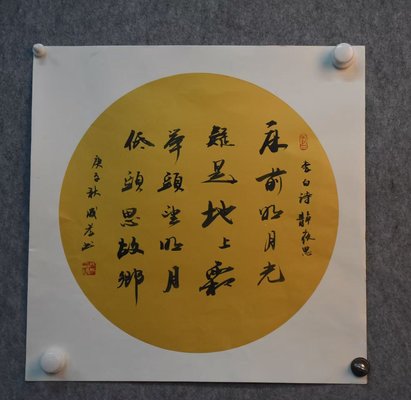 李白诗静夜思
床前明月光
疑是地上霜
举頭望明月
低頭思故鄉
庚子秋